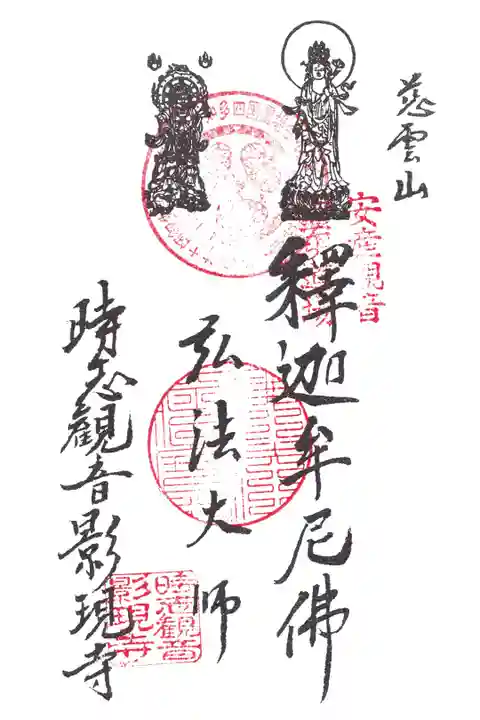 慈雲山
安産観音
釋迦牟尼佛
弘法大師
時志観音影現寺
時志観音
影現寺